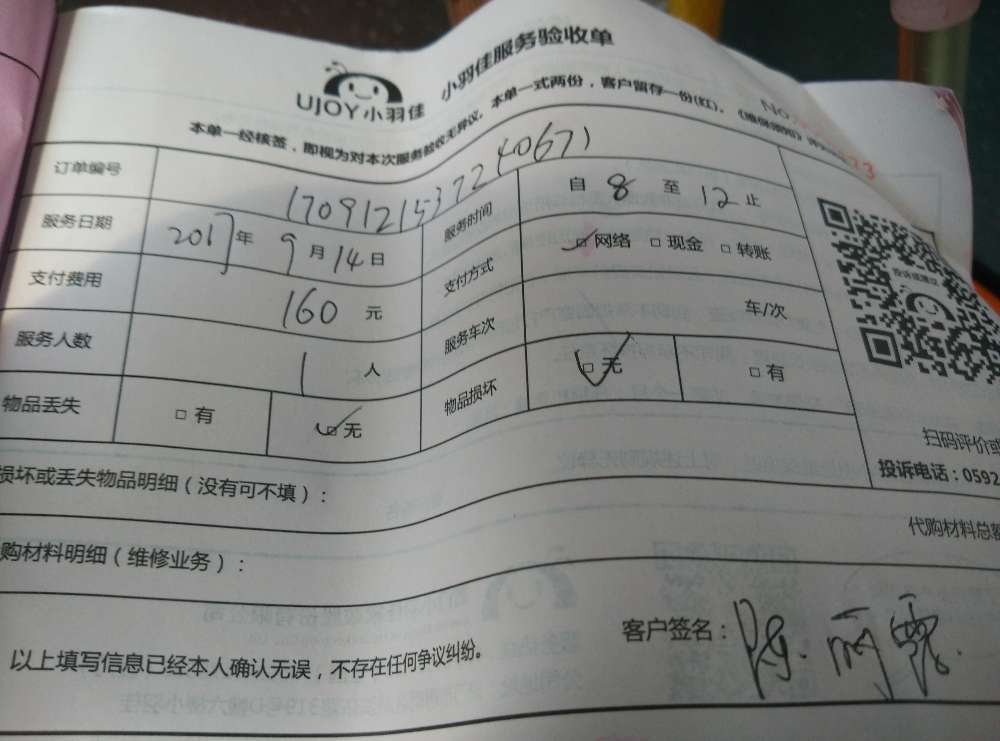 UJOY小羽佳 小羽佳服务验收单
本单一经核签,即视为对本次服务验收无异议。本单一式两份,客户留存一份(红)。
No.
订单编号 17091215372240671
服务日期 2017年9月14日 服务时间 自8至12止
支付费用 160元 支付方式 ☑网络 □现金 □转账
服务人数 1人 服务车次 车/次
物品丢失 □有 ☑无 物品损坏 ☑无 □有
投诉或建议
扫码评价或
投诉电话:0592
损坏或丢失物品明细(没有可不填):
代购材料总额
购材料明细(维修业务):
以上填写信息已经本人确认无误,不存在任何争议纠纷。
客户签名:陈丽霞